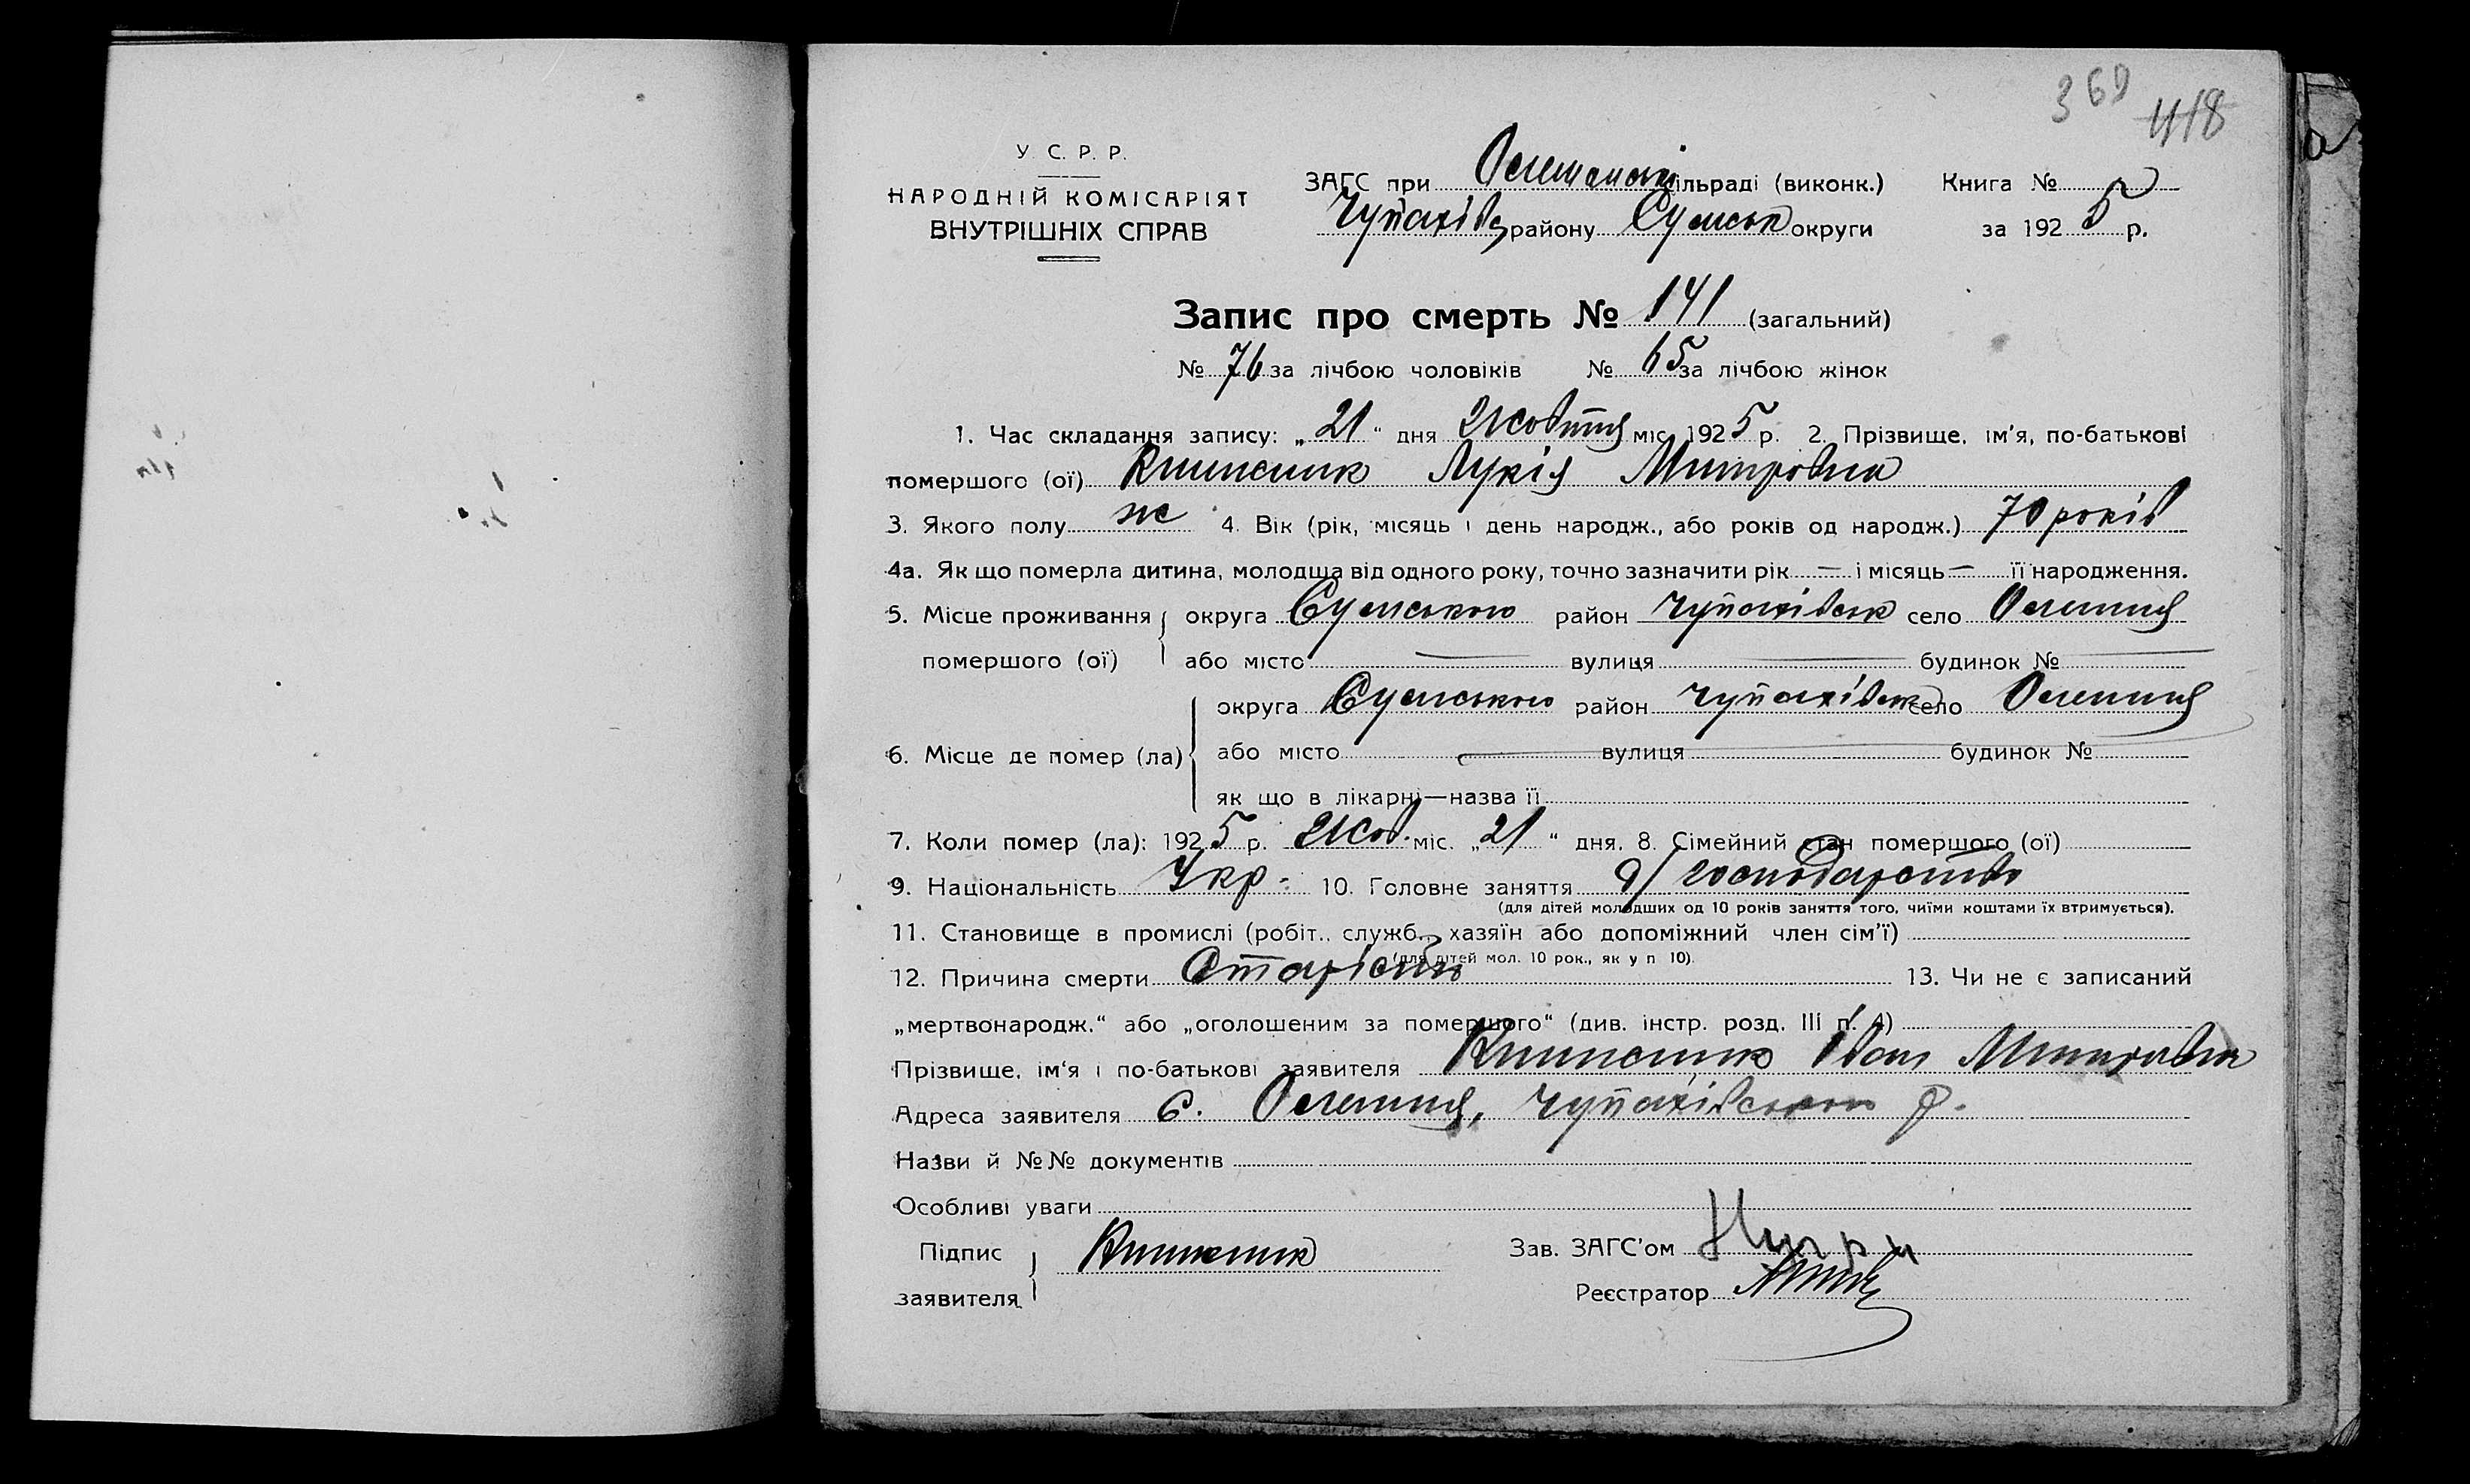 369 418
У. С. Р. Р.
НАРОДНІЙ КОМІСАРІЯТ
ВНУТРІШНІХ СПРАВ
ЗАГС при Олешанськ сільраді (виконк.) Книга № 2
Чупахівс району Сумськ округи за 1925 р.
Запис про смерть № 141 (загальний)
№ 76 за лічбою чоловіків № 65 за лічбою жінок
1. Час складання запису: „21“ дня Жовтня міс. 1925 р. 2. Прізвище, ім'я, по-батькові
помершого (ої) Лукія Митровна
3. Якого полу ж 4. Вік (рік, місяць і день народж., або років од народж.) 70 років
4а. Як що померла дитина, молодша від одного року, точно зазначити рік — і місяць — її народження.
5. Місце проживання округа Сумською район Чупахівськ село Олешня
помершого (ої) або місто — вулиця — будинок № —
округа Сумською район Чупахівськ село Олешня
6. Місце де помер (ла) або місто — вулиця — будинок № —
як що в лікарні—назва її
7. Коли помер (ла): 1925 р. Жов. міс. „21“ дня. 8. Сімейний стан помершого (ої)
9. Національність Укр. 10. Головне заняття д/господарство
(для дітей молодших од 10 років заняття того, чиїми коштами їх втримується).
11. Становище в промислі (робіт., служб., хазяїн або допоміжний член сім'ї)
(для дітей мол. 10 рок., як у п 10).
12. Причина смерти Старість 13. Чи не є записаний
„мертвонародж.“ або „оголошеним за помершого“ (див. інстр. розд. III п. 4)
Прізвище, ім'я і по-батькові заявителя Іван
Адреса заявителя с. Олешня, Чупахівською р.
Назви й №№ документів
Особливі уваги
Підпис
заявителя
Зав. ЗАГС'ом
Реєстратор